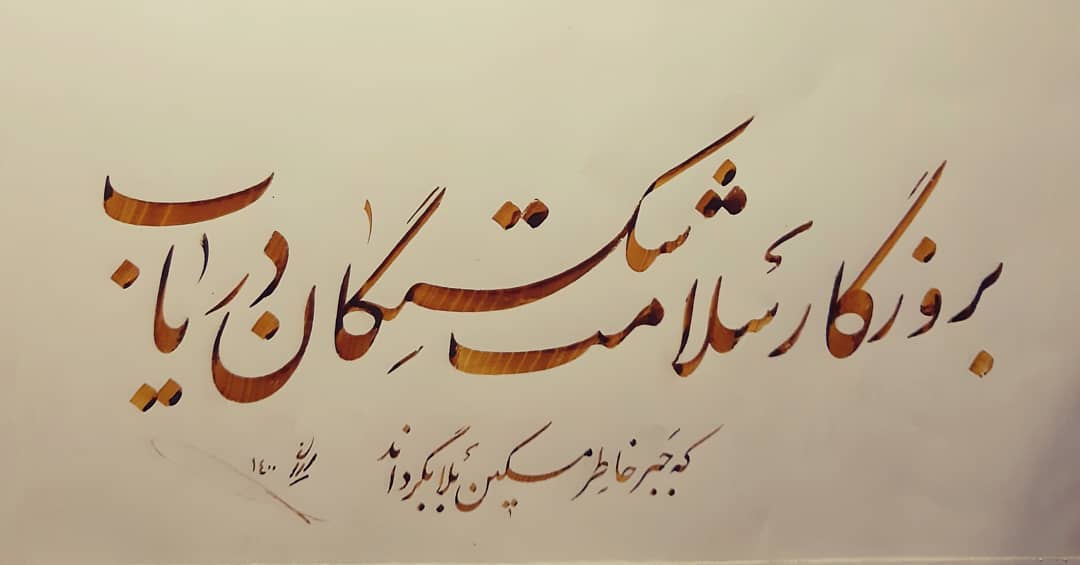 بروزگار سلامت شکستگان دریاب
که جبر خاطر مسکین بلا بگرداند
۱۴۰۰